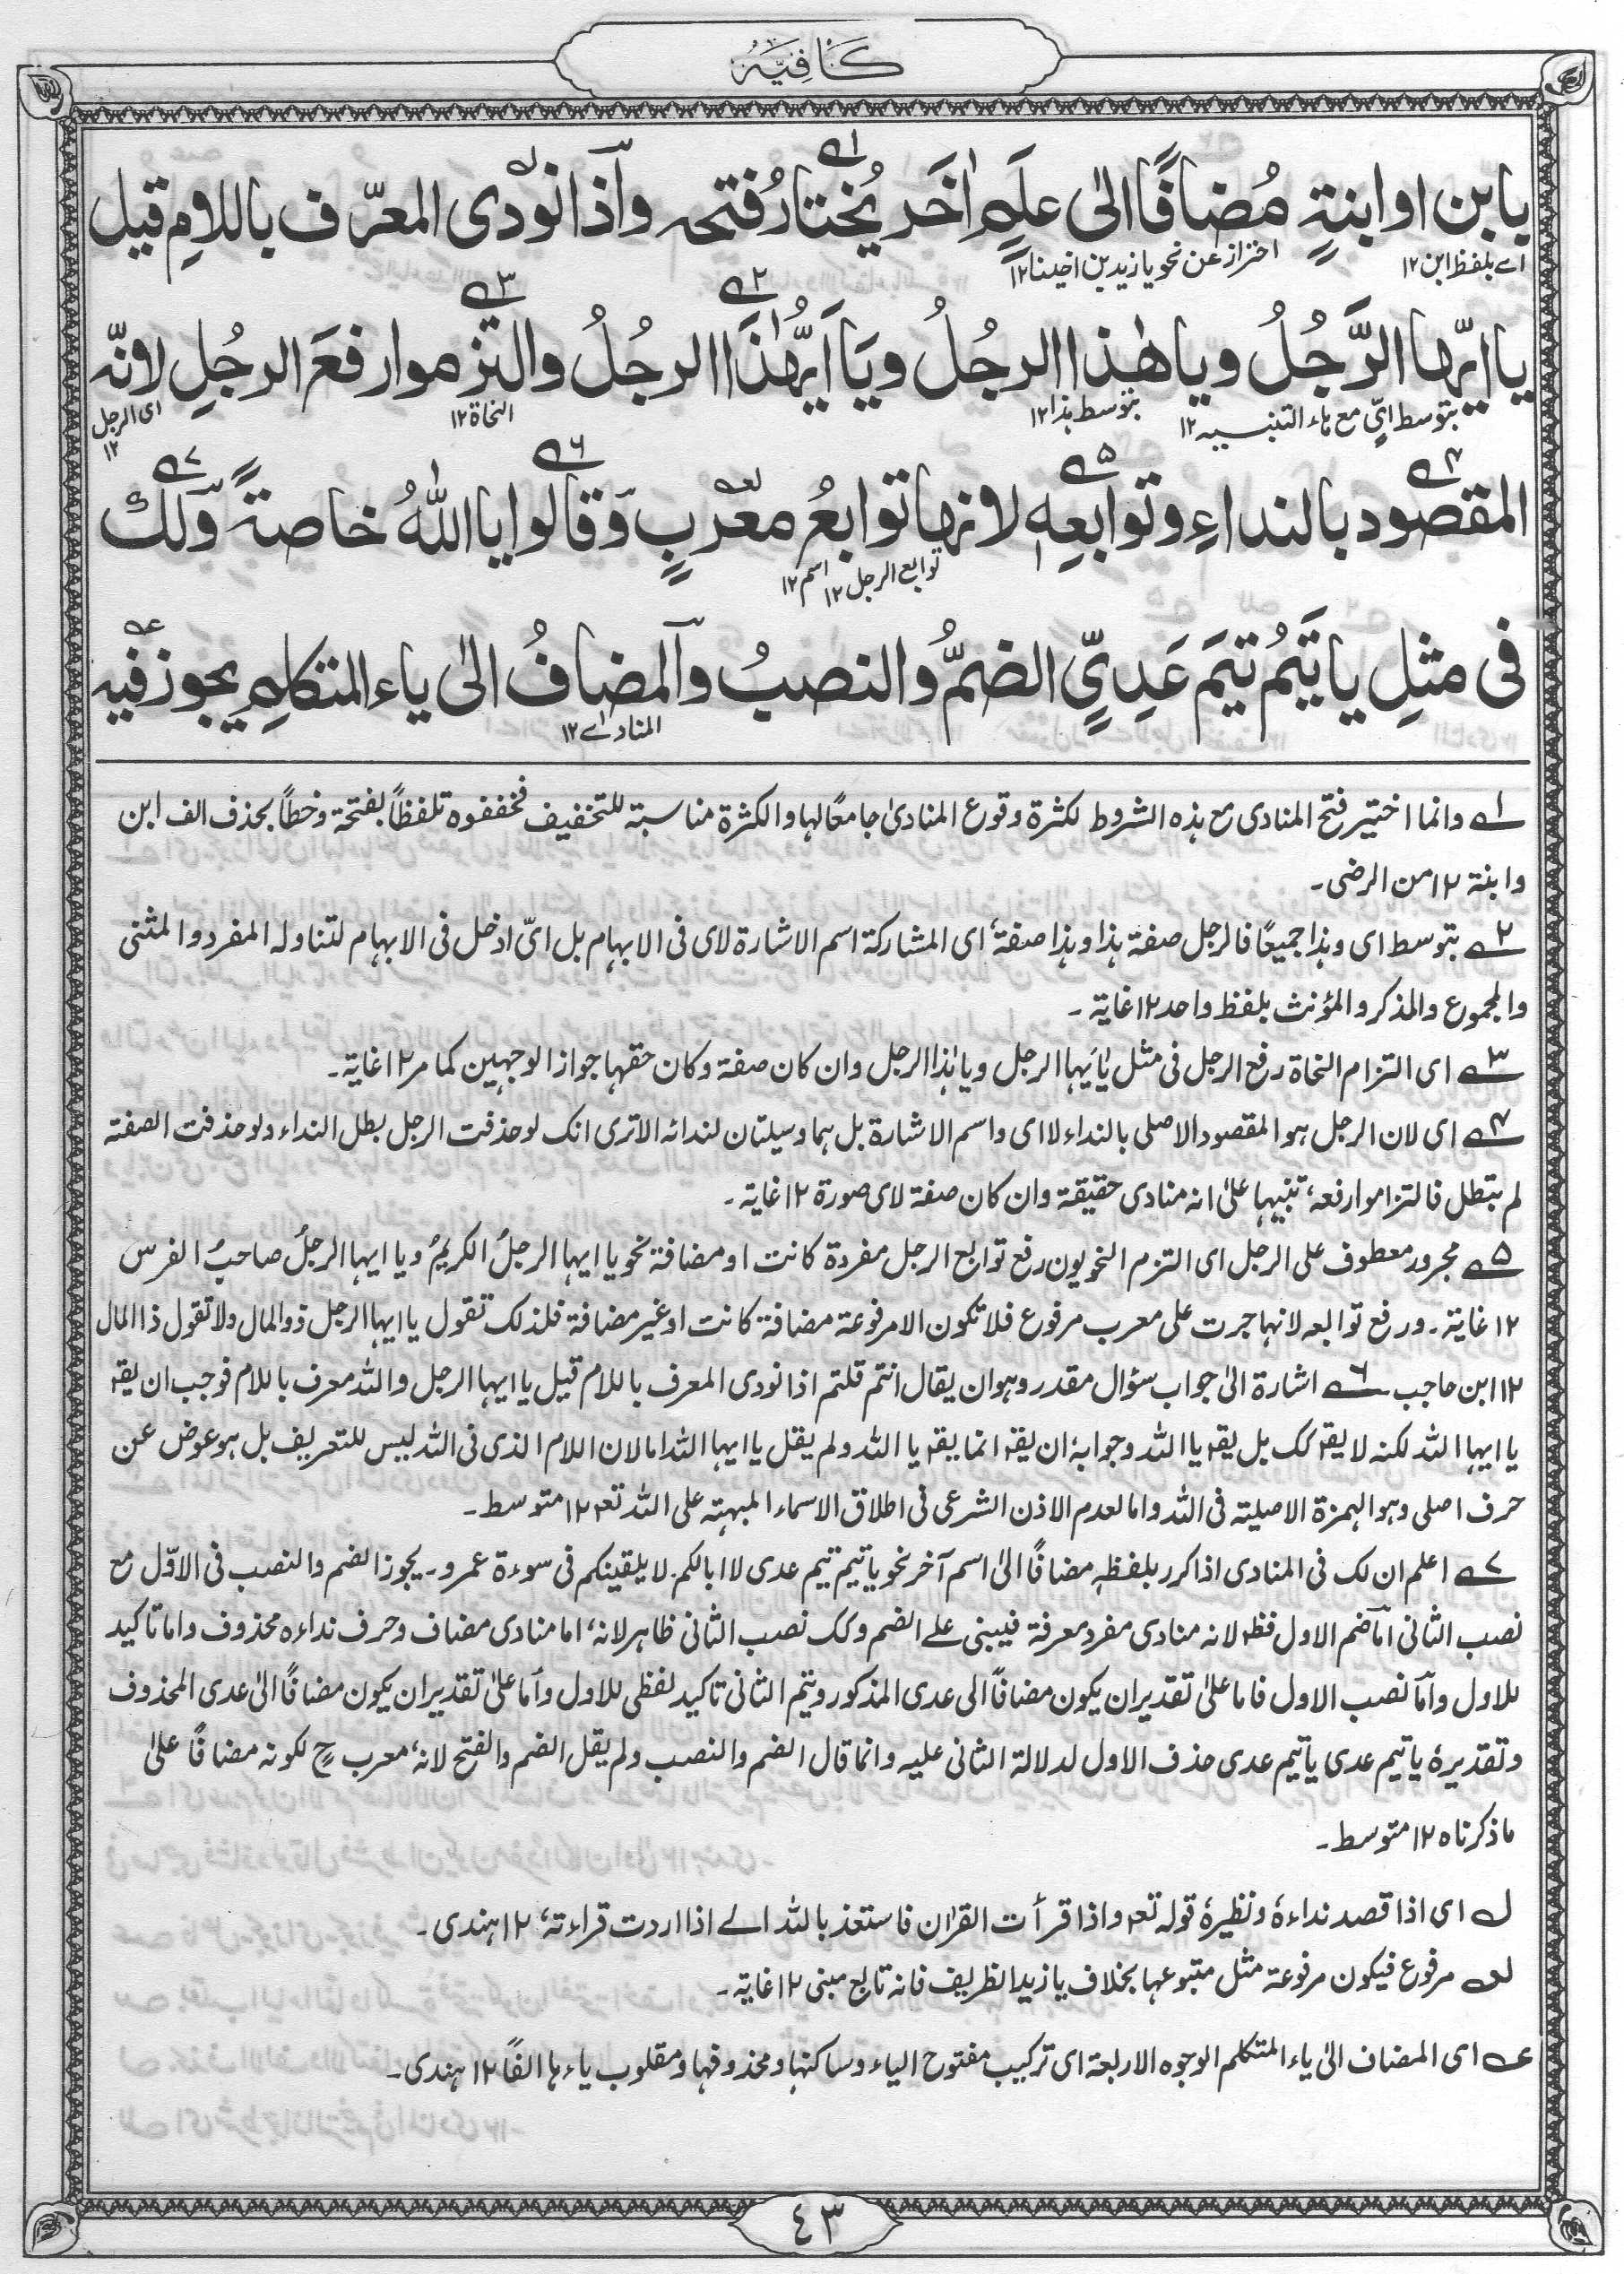 كَافِيَه
يا بن او ابنةٍ مُضافًا الىٰ علَمٍ اٰخَر يُختارُ فتحه وآذا نودى المعرّف باللامِ قيل
اے بلفظ ابن ١٢ احتراز عن نحو يا زيد بن اخينا ١٢
يا ايّها الرَّجُلُ ويا هٰذا الرجُلُ ويَا اَيُّهٰذَا الرجُلُ والتزموا رفعَ الرجُلِ لانّه
بتوسط ايّ مع هاء التنبيه ١٢ بتوسط هذا ١٢ النحاة ١٢ اى الرجل ١٢
المقصود بالنداءِ وتوابعِه لانها توابعُ معرَبٍ وَقالوا يا اللّٰهُ خاصةً وَلك
توابع الرجل ١٢ اسم ١٢
فى مثلِ يا تَيمُ تيَم عَدِيٍّ الضمُّ والنصبُ وآلمضافُ الىٰ ياء المتكلمِ يجوز فيه
المنادٰے ١٢
١ے وانما اختير فتح المنادى مع هذه الشروط لكثرة وقوع المنادىٰ جامعًا لها والكثرة مناسبة للتخفيف فخففوه تلفظاً بفتحة وخطاً بحذف الف ابن
وابنة ١٢ من الرضى۔
٢ے بتوسط اى وهذا جميعًا فالرجل صفة هذا وهذا صفة، اى المشاركة اسم الاشارة لاى فى الابهام بل ايّ ادخل فى الابهام لتناوله المفرد والمثنى
والمجموع والمذكر والمؤنث بلفظ واحد ١٢ غاية۔
٣ے اى التزام النحاة رفع الرجل فى مثل يٰايّها الرجل ويا هٰذا الرجل وان كان صفة وكان حقها جواز الوجهين كما مر ١٢ غاية۔
٤ے اى لان الرجل هو المقصود الاصلى بالنداء لا اى واسم الاشارة بل هما وسيلتان لندائه الا ترى انك لو حذفت الرجل بطل النداء ولو حذفت الصفة
لم بتطل فالتزاموا رفعه، تنبيها علىٰ انه منادى حقيقة وان كان صفة لاى صورة ١٢ غاية۔
٥ے مجرور معطوف على الرجل اى التزم النحويون رفع توابع الرجل مفردة كانت او مضافة نحو يا ايها الرجلُ الكريمُ ويا ايها الرجلُ صاحبُ الفرس
١٢ غاية۔ ورفع توابعه لانها جرت على معرب مرفوع فلا تكون الا مرفوعة مضافة كانت او غير مضافة فلذلك تقول يا ايها الرجل ذو المال ولا تقول ذا المال
١٢ ابن حاجب ٦ے اشارة الىٰ جواب سؤال مقدر وهو ان يقال انتم قلتم اذا نودى المعرف باللام قيل يا ايها الرجل والله معرف باللام فوجب ان يقه
يا ايها الله لكنه لا يقه كك بل يقه يا الله وجوابهٗ ان يقه انما يقه يا الله ولم يقل يا ايها الله اما لان اللام الذى فى الله ليس للتعريف بل هو عوض عن
حرف اصلى وهو الهمزة الاصلية فى الله واما لعدم الاذن الشرعى فى اطلاق الاسماء المبهمة على الله تعه ١٢ متوسط۔
٧ے اعلم ان لك فى المنادى اذا كرر بلفظهٖ مضافًا الىٰ اسم آخر نحو يا تيم تيم عدى لا ابا لكم۔ لا يلقينكم فى سوءة عمرو۔ يجوز الضم والنصب فى الاوّل مع
نصب الثانى امّا ضم الاول فظه لانه منادى مفرد معرفة فيبنى علے الضم وكك نصب الثانى ظاهر لانه، اما منادى مضاف وحرف نداءه محذوف واما تاكيد
للاول وامّا نصب الاول فاما علىٰ تقدير ان يكون مضافًا الى عدى المذكور وتيم الثانى تاكيد لفظى للاول وامّا علىٰ تقدير ان يكون مضافًا الىٰ عدى المحذوف
وتقديرهٗ يا تيم عدى يا تيم عدى حذف الاول لدلالة الثانى عليه وانما قال الضم والنصب ولم يقل الضم والفتح لانه، معرب ح لكونه مضافًا علىٰ
ما ذكرناه ١٢ متوسط۔
ل اى اذا قصد نداءهٗ ونظيرهٗ قوله تعه واذا قرأت القراٰن فاستعذ بالله اے اذا اردت قراءتهٗ، ١٢ هندى۔
لعه مرفوع فيكون مرفوعة مثل متبوعها بخلاف يا زيد الظريف فانه تابع مبنى ١٢ غاية۔
عه اى المضاف الىٰ ياء المتكلم الوجوه الاربعة اى تركيب مفتوح الياء وساكنها ومحذوفها ومقلوب ياءها الفًا ١٢ هندى۔
٤٣